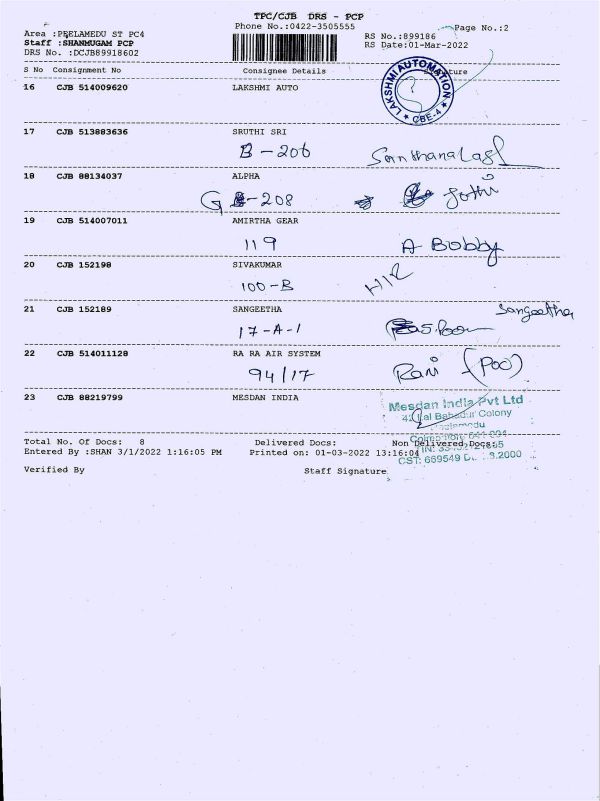 TPC/CJB DRS - PCP
Phone No.:0422-3505555
Page No.:2
Area :PEELAMEDU ST PC4
Staff :SHANMUGAM PCP
DRS No. :DCJB89918602
RS No.:899186
RS Date:01-Mar-2022
S No Consignment No Consignee Details
16 CJB 514009620 LAKSHMI AUTO
LAKSHMI AUTOMATION
★ CBE-4 ★
17 CJB 513883636 SRUTHI SRI
B-206
18 CJB 88134037 ALPHA
G -208 Jothi
19 CJB 514007011 AMIRTHA GEAR
119 A Bobby
20 CJB 152198 SIVAKUMAR
100-B
21 CJB 152189 SANGEETHA Sangeetha
17-A-1
22 CJB 514011128 RA RA AIR SYSTEM
94/17 Rani (Poo)
23 CJB 88219799 MESDAN INDIA
Mesdan India Pvt Ltd
Colony
Total No. Of Docs: 8 Delivered Docs: Non Delivered Docs:
Entered By :SHAN 3/1/2022 1:16:05 PM Printed on: 01-03-2022 13:16:04
CST: 669549
Verified By Staff Signature